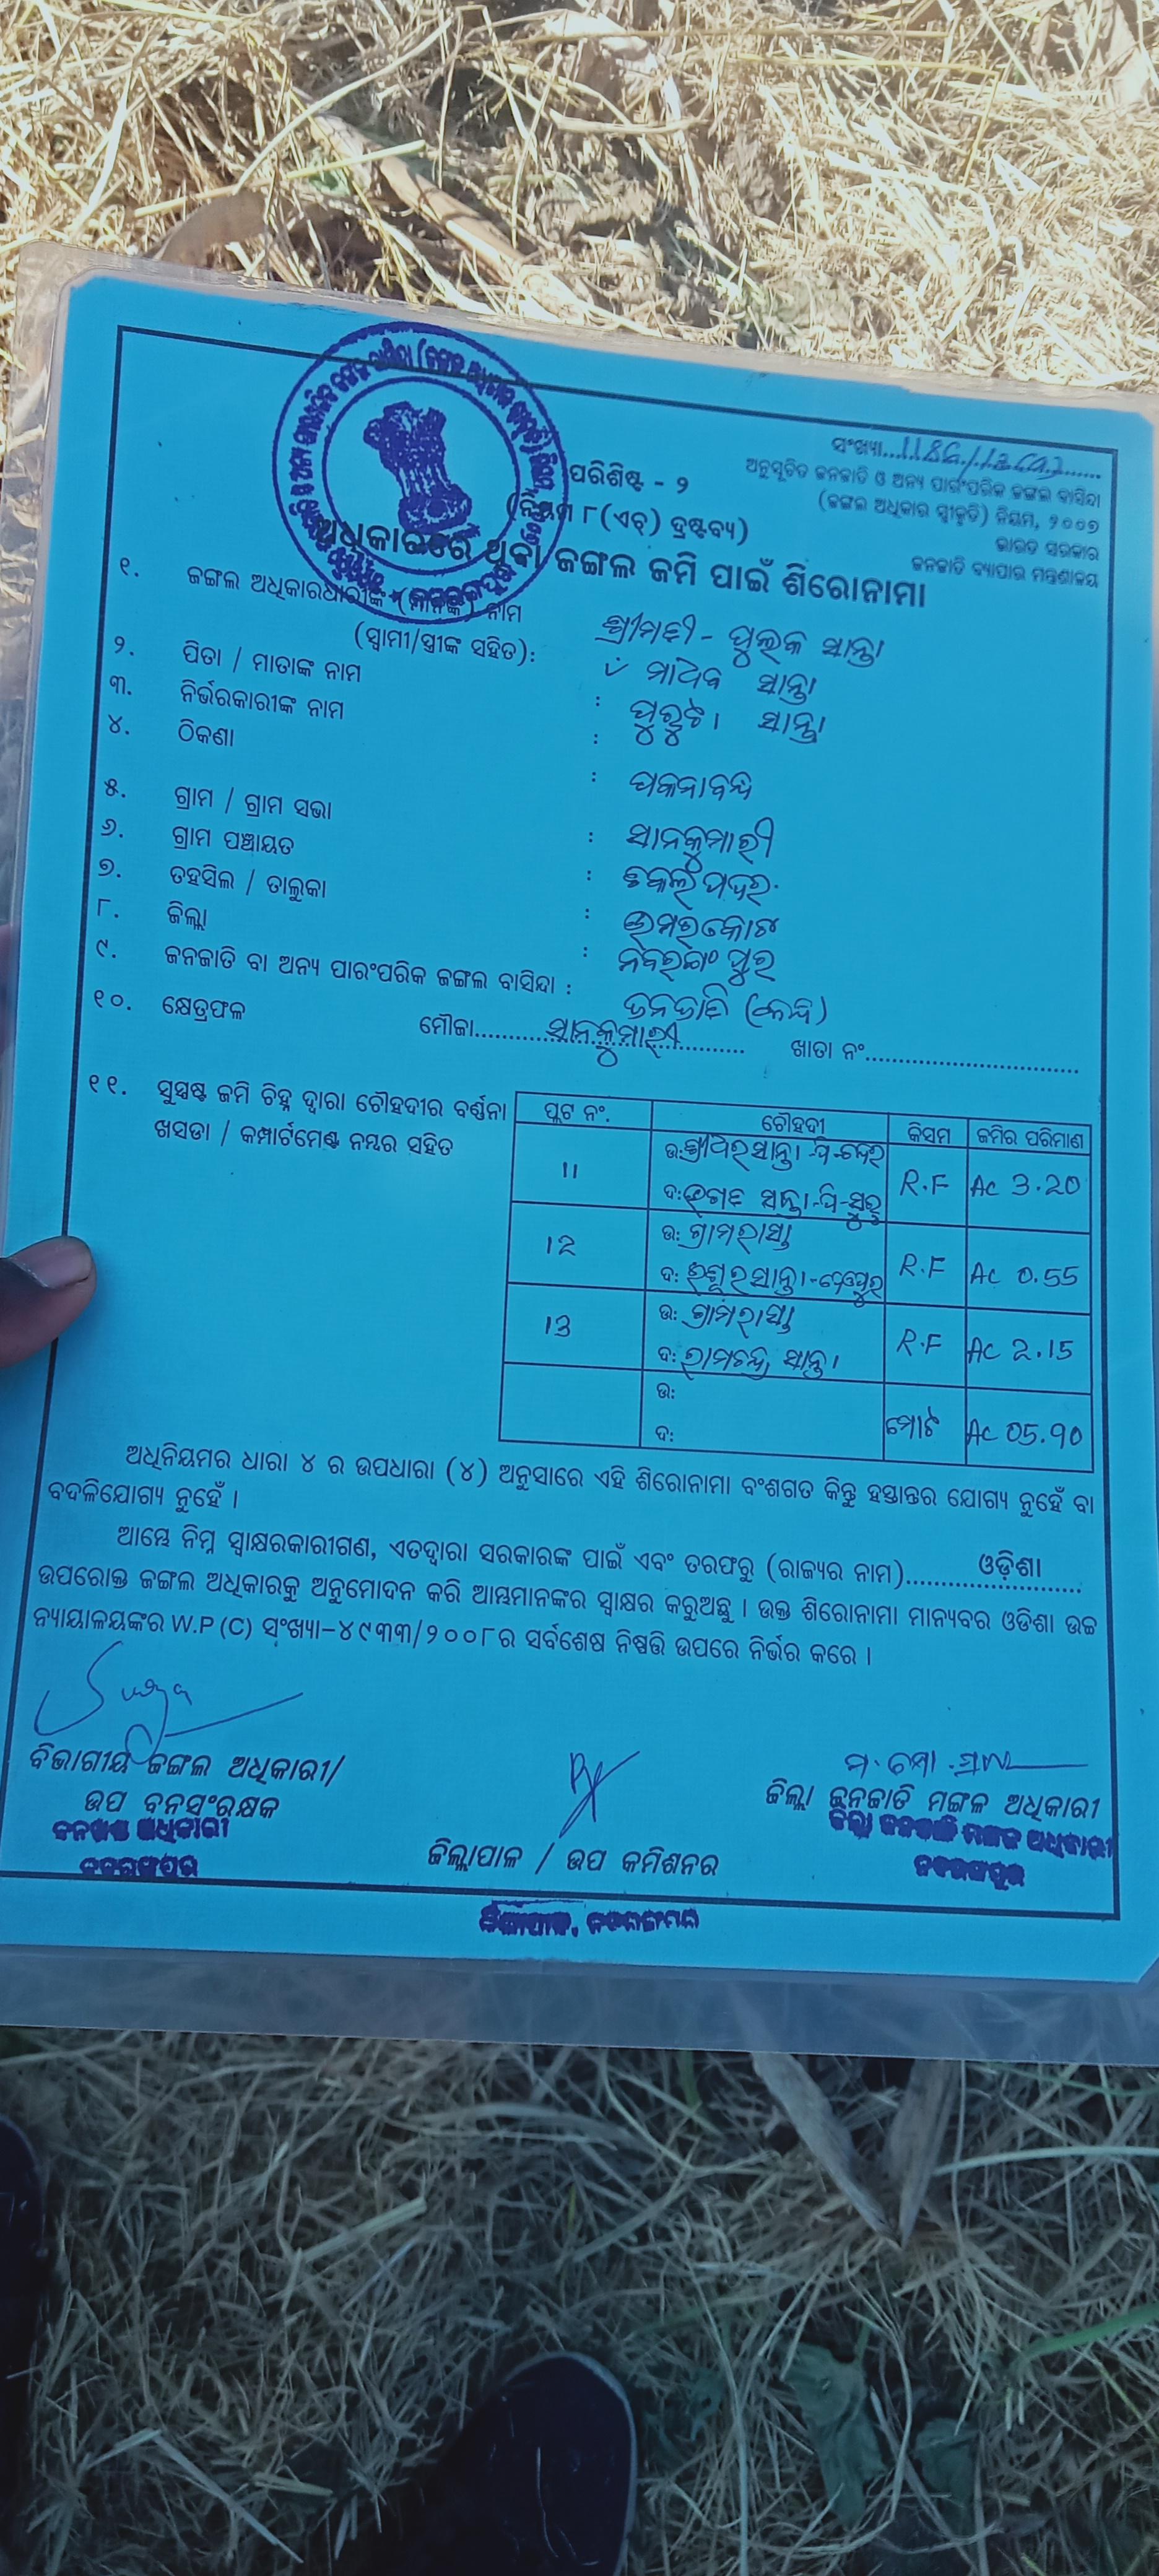 ସଂଖ୍ୟା...
ଅନୁସୂଚିତ ଜନଜାତି ଓ ଅନ୍ୟ ପାରଂପରିକ ଜଙ୍ଗଲ ବାସିନ୍ଦା
(ଜଙ୍ଗଲ ଅଧିକାର ସ୍ୱୀକୃତି) ନିୟମ, ୨୦୦୭
ଭାରତ ସରକାର
ଜନଜାତି ବ୍ୟାପାର ମନ୍ତ୍ରଣାଳୟ
ପରିଶିଷ୍ଟ - ୨
(ନିୟମ ୮(ଏଚ୍) ଦ୍ରଷ୍ଟବ୍ୟ)
ଅଧିକାରରେ ଥିବା ଜଙ୍ଗଲ ଜମି ପାଇଁ ଶିରୋନାମା
୧. ଜଙ୍ଗଲ ଅଧିକାରଧାରୀଙ୍କ (ମାନଙ୍କ) ନାମ
(ସ୍ୱାମୀ/ସ୍ତ୍ରୀଙ୍କ ସହିତ): ଶ୍ରୀମତୀ - ସାନ୍ତା
୨. ପିତା / ମାତାଙ୍କ ନାମ : ମାଧବ ସାନ୍ତା
୩. ନିର୍ଭରକାରୀଙ୍କ ନାମ : ସାନ୍ତା
୪. ଠିକଣା :
୫. ଗ୍ରାମ / ଗ୍ରାମ ସଭା : ସାନକୁମାରୀ
୬. ଗ୍ରାମ ପଞ୍ଚାୟତ :
୭. ତହସିଲ / ତାଲୁକା : ଉମରକୋଟ
୮. ଜିଲ୍ଲା : ନବରଙ୍ଗପୁର
୯. ଜନଜାତି ବା ଅନ୍ୟ ପାରଂପରିକ ଜଙ୍ଗଲ ବାସିନ୍ଦା : ଜନଜାତି
୧୦. କ୍ଷେତ୍ରଫଳ ମୌଜା... ସାନକୁମାରୀ ... ଖାତା ନଂ...
୧୧. ସୁସ୍ପଷ୍ଟ ଜମି ଚିହ୍ନ ଦ୍ୱାରା ଚୌହଦୀର ବର୍ଣ୍ଣନା
ଖସଡା / କମ୍ପାର୍ଟମେଣ୍ଟ ନମ୍ବର ସହିତ
ପ୍ଲଟ ନଂ. ଚୌହଦୀ କିସମ ଜମିର ପରିମାଣ
11 ଉ: ଶ୍ରୀଧର ସାନ୍ତା R.F Ac 3.20
ଦ: ସାନ୍ତା
12 ଉ: ଗ୍ରାମ ରାସ୍ତା R.F Ac 0.55
ଦ: ସାନ୍ତା
13 ଉ: ଗ୍ରାମ ରାସ୍ତା R.F Ac 2.15
ଦ: ରାମଚନ୍ଦ୍ର ସାନ୍ତା
ଉ:
ଦ: ମୋଟ Ac 05.90
ଅଧିନିୟମର ଧାରା ୪ ର ଉପଧାରା (୪) ଅନୁସାରେ ଏହି ଶିରୋନାମା ବଂଶଗତ କିନ୍ତୁ ହସ୍ତାନ୍ତର ଯୋଗ୍ୟ ନୁହେଁ ବା
ବଦଳିଯୋଗ୍ୟ ନୁହେଁ ।
ଆମ୍ଭେ ନିମ୍ନ ସ୍ୱାକ୍ଷରକାରୀଗଣ, ଏତଦ୍ୱାରା ସରକାରଙ୍କ ପାଇଁ ଏବଂ ତରଫରୁ (ରାଜ୍ୟର ନାମ)... ଓଡ଼ିଶା
ଉପରୋକ୍ତ ଜଙ୍ଗଲ ଅଧିକାରକୁ ଅନୁମୋଦନ କରି ଆମ୍ଭମାନଙ୍କର ସ୍ୱାକ୍ଷର କରୁଅଛୁ । ଉକ୍ତ ଶିରୋନାମା ମାନ୍ୟବର ଓଡିଶା ଉଚ୍ଚ
ନ୍ୟାୟାଳୟଙ୍କର W.P (C) ସଂଖ୍ୟା-୪୯୩୩/୨୦୦୮ର ସର୍ବଶେଷ ନିଷ୍ପତ୍ତି ଉପରେ ନିର୍ଭର କରେ ।
ବିଭାଗୀୟ ଜଙ୍ଗଲ ଅଧିକାରୀ/
ଉପ ବନସଂରକ୍ଷକ
ବନଖଣ୍ଡ ଅଧିକାରୀ
ନବରଙ୍ଗପୁର
ଜିଲ୍ଲାପାଳ / ଉପ କମିଶନର
ଜିଲ୍ଲାପାଳ, ନବରଙ୍ଗପୁର
ଜିଲ୍ଲା ଜନଜାତି ମଙ୍ଗଳ ଅଧିକାରୀ
ଜିଲ୍ଲା ଜନଜାତି ମଙ୍ଗଳ ଅଧିକାରୀ
ନବରଙ୍ଗପୁର